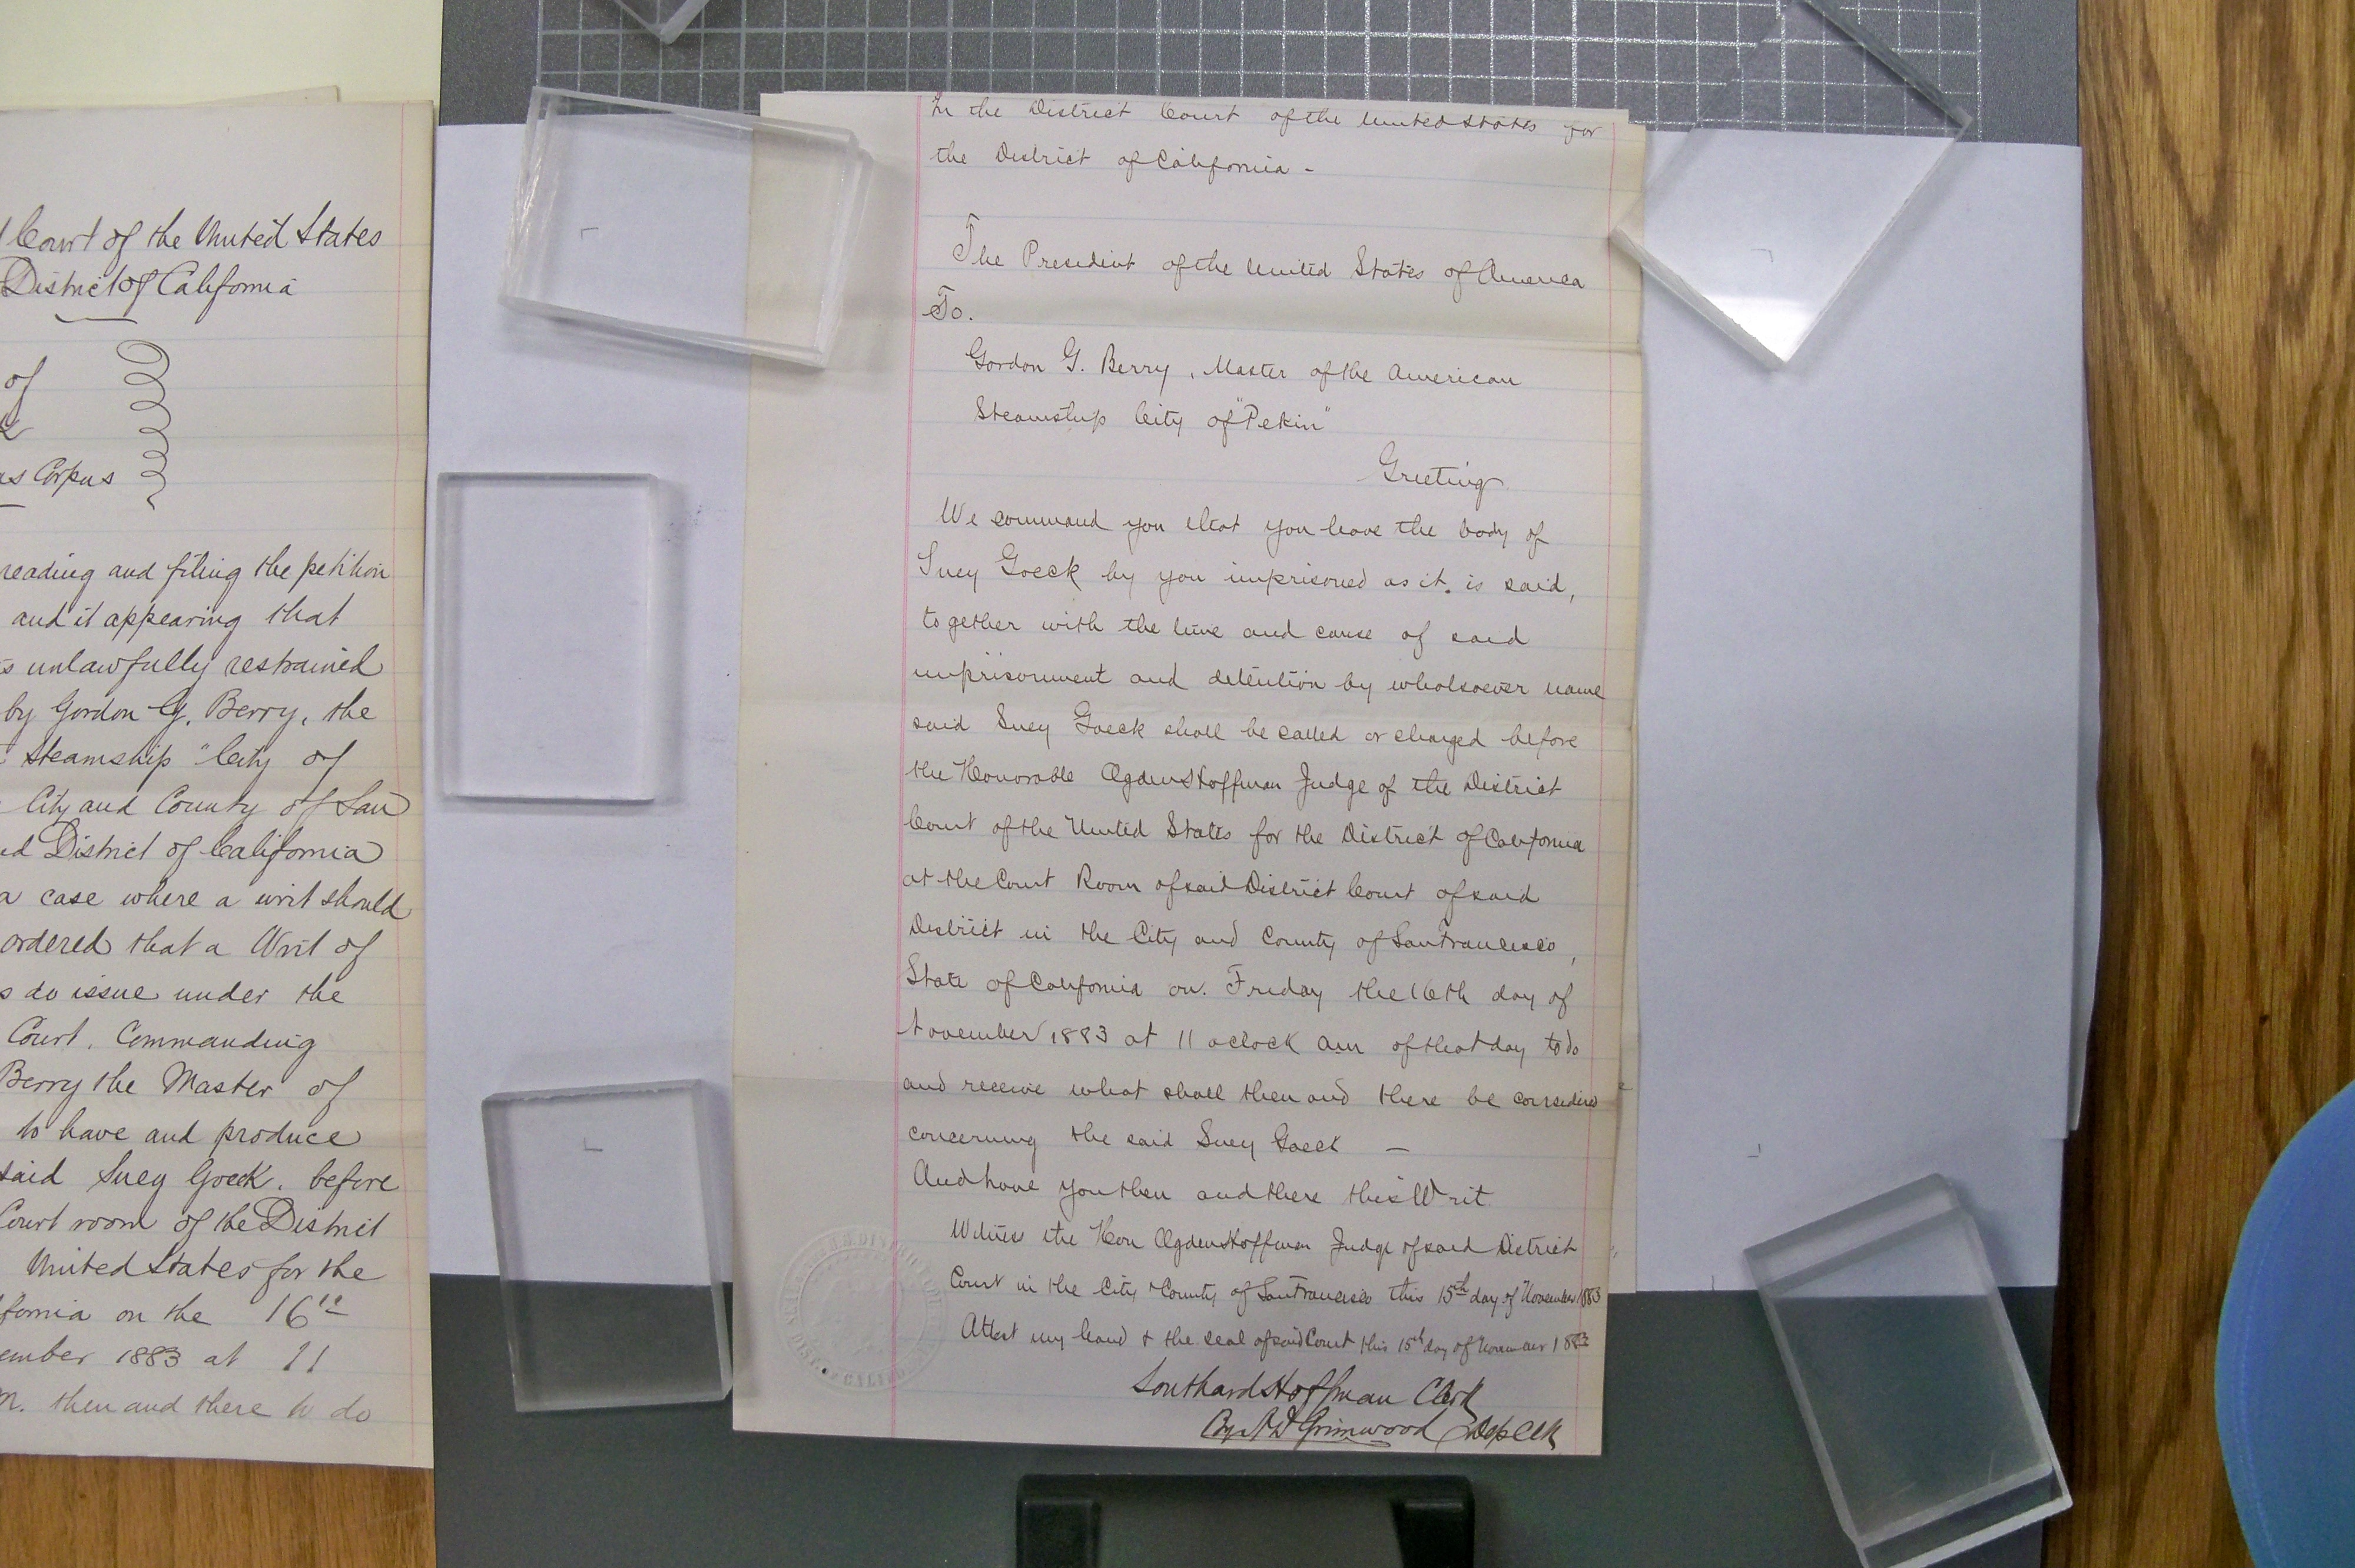 Court of the United States
District of California
of
Corpus
reading and filing the petition
and it appearing that
unlawfully restrained
by Gordon G. Berry, the
steamship "City of
City and County of San
District of California
a case where a writ should
ordered that a Writ of
do issue under the
Court. Commanding
Berry the Master of
to have and produce
said Suey Goeck. before
Court room of the District
United States for the
on the 16th
1883 at 11
then and there to do
In the District Court of the United States for
the District of California -
The President of the United States of America
To.
Gordon G. Berry, Master of the American
Steamship City of "Pekin"
Greeting
We command you that you have the body of
Suey Goeck by you imprisoned as it is said,
together with the time and cause of said
imprisonment and detention by whatsoever name
said Suey Goeck shall be called or charged before
the Honorable Ogden Hoffman Judge of the District
Court of the United States for the District of California
at the Court Room of said District Court of said
District in the City and County of San Francisco,
State of California on. Friday the 16th day of
November 1883 at 11 oclock am of that day to do
and receive what shall then and there be considered
concerning the said Suey Goeck —
And have you then and there this Writ
Witness the Hon Ogden Hoffman Judge of said District
Court in the City & County of San Francisco this 15th day of November 1883
Attest my hand & the seal of said Court this 15th day of November 1883
Southard Hoffman Clerk
Grimwood Dep Clk